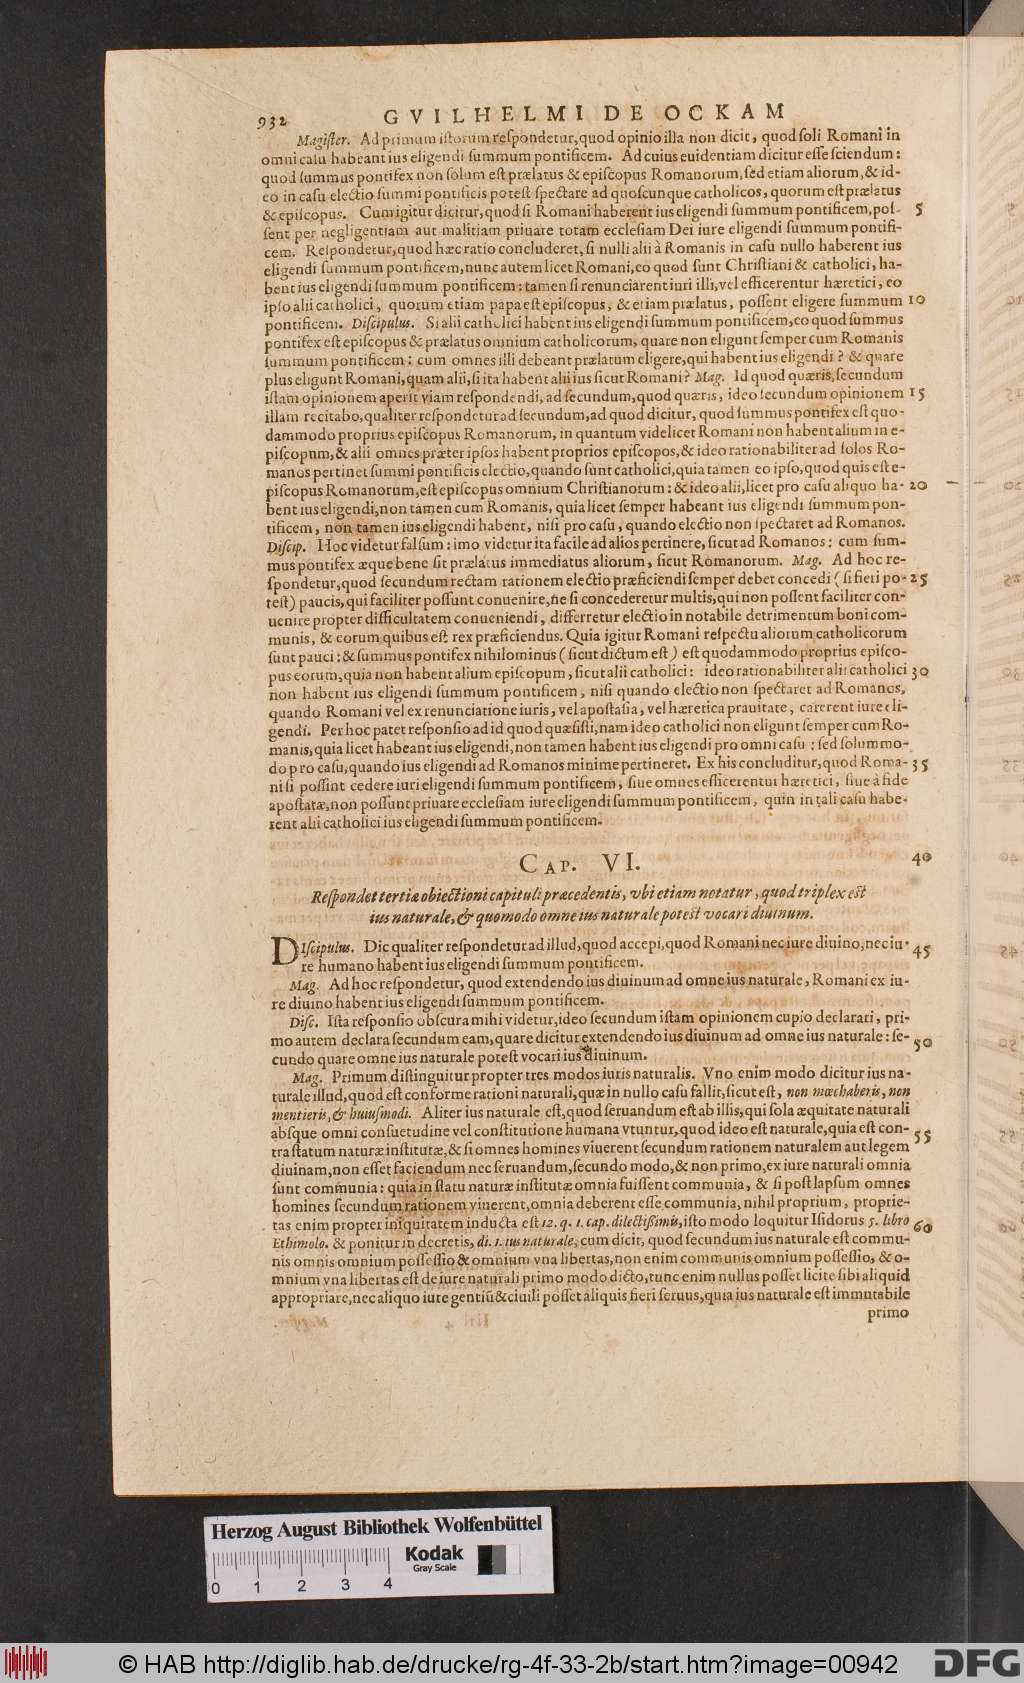 932 GVILHELMI DE OCKAM
Magiſter. Ad primum iſtorum reſpondetur, quod opinio illa non dicit, quod ſoli Romani in
omni caſu habeant ius eligendi ſummum pontificem. Ad cuius euidentiam dicitur eſſe ſciendum:
quod ſummus pontifex non ſolum eſt prælatus & epiſcopus Romanorum, ſed etiam aliorum, & id-
eo in caſu electio ſummi pontificis poteſt ſpectare ad quoſcunque catholicos, quorum eſt prælatus
& epiſcopus. Cum igitur dicitur, quod ſi Romani haberent ius eligendi ſummum pontificem, poſ- 5
ſent per negligentiam aut malitiam priuare totam eccleſiam Dei iure eligendi ſummum pontifi-
cem. Reſpondetur, quod hæc ratio concluderet, ſi nulli alii à Romanis in caſu nullo haberent ius
eligendi ſummum pontificem, nunc autem licet Romani, eo quod ſunt Chriſtiani & catholici, ha-
bent ius eligendi ſummum pontificem: tamen ſi renunciarent iuri illi, vel efficerentur hæretici, eo
ipſo alii catholici, quorum etiam papa eſt epiſcopus, & etiam prælatus, poſſent eligere ſummum 10
pontificem. Diſcipulus. Si alii catholici habent ius eligendi ſummum pontificem, eo quod ſummus
pontifex eſt epiſcopus & prælatus omnium catholicorum, quare non eligunt ſemper cum Romanis
ſummum pontificem: cum omnes illi debeant prælatum eligere, qui habent ius eligendi? & quare
plus eligunt Romani, quam alii, ſi ita habent alii ius ſicut Romani? Mag. Id quod quæris, ſecundum
iſtam opinionem aperit viam reſpondendi, ad ſecundum, quod quæris, ideo ſecundum opinionem 15
illam recitabo, qualiter reſpondetur ad ſecundum, ad quod dicitur, quod ſummus pontifex eſt quo-
dammodo proprius epiſcopus Romanorum, in quantum videlicet Romani non habent alium in e-
piſcopum, & alii omnes præter ipſos habent proprios epiſcopos, & ideo rationabiliter ad ſolos Ro-
manos pertinet ſummi pontificis electio, quando ſunt catholici, quia tamen eo ipſo, quod quis eſt e-
piſcopus Romanorum, eſt epiſcopus omnium Chriſtianorum: & ideo alii, licet pro caſu aliquo ha- 20
bent ius eligendi, non tamen cum Romanis, quia licet ſemper habeant ius eligendi ſummum pon-
tificem, non tamen ius eligendi habent, niſi pro caſu, quando electio non ſpectaret ad Romanos.
Diſcip. Hoc videtur falſum: imo videtur ita facile ad alios pertinere, ſicut ad Romanos: cum ſum-
mus pontifex æque bene ſit prælatus immediatus aliorum, ſicut Romanorum. Mag. Ad hoc re-
ſpondetur, quod ſecundum rectam rationem electio præficiendi ſemper debet concedi (ſi fieri po- 25
teſt) paucis, qui faciliter poſſunt conuenire, ne ſi concederetur multis, qui non poſſent faciliter con-
uenire propter difficultatem conueniendi, differretur electio in notabile detrimentum boni com-
munis, & eorum quibus eſt rex præficiendus. Quia igitur Romani reſpectu aliorum catholicorum
ſunt pauci: & ſummus pontifex nihilominus (ſicut dictum eſt) eſt quodammodo proprius epiſco-
pus eorum, quia non habent alium epiſcopum, ſicut alii catholici: ideo rationabiliter alii catholici 30
non habent ius eligendi ſummum pontificem, niſi quando electio non ſpectaret ad Romanos,
quando Romani vel ex renunciatione iuris, vel apoſtaſia, vel hæretica prauitate, carerent iure eli-
gendi. Per hoc patet reſponſio ad id quod quæſiſti, nam ideo catholici non eligunt ſemper cum Ro-
manis, quia licet habeant ius eligendi, non tamen habent ius eligendi pro omni caſu: ſed ſolummo-
do pro caſu, quando ius eligendi ad Romanos minime pertineret. Ex his concluditur, quod Roma- 35
ni ſi poſſint cedere iuri eligendi ſummum pontificem, ſiue omnes efficerentur hæretici, ſiue à fide
apoſtatæ, non poſſunt priuare eccleſiam iure eligendi ſummum pontificem, quin in tali caſu habe-
rent alii catholici ius eligendi ſummum pontificem.
CAP. VI. 40
Reſpondet tertiæ obiectioni capituli præcedentis, vbi etiam notatur, quod triplex eſt
ius naturale, & quomodo omne ius naturale poteſt vocari diuinum.
DIſcipulus. Dic qualiter reſpondetur ad illud, quod accepi, quod Romani nec iure diuino, nec iu- 45
re humano habent ius eligendi ſummum pontificem.
Mag. Ad hoc reſpondetur, quod extendendo ius diuinum ad omne ius naturale, Romani ex iu-
re diuino habent ius eligendi ſummum pontificem.
Diſc. Iſta reſponſio obſcura mihi videtur, ideo ſecundum iſtam opinionem cupio declarari, pri-
mo autem declara ſecundum eam, quare dicitur extendendo ius diuinum ad omne ius naturale: ſe- 50
cundo quare omne ius naturale poteſt vocari ius diuinum.
Mag. Primum diſtinguitur propter tres modos iuris naturalis. Vno enim modo dicitur ius na-
turale illud, quod eſt conforme rationi naturali, quæ in nullo caſu fallit, ſicut eſt, non mœchaberis, non
mentieris, & huiuſmodi. Aliter ius naturale eſt, quod ſeruandum eſt ab illis, qui ſola æquitate naturali
abſque omni conſuetudine vel conſtitutione humana vtuntur, quod ideo eſt naturale, quia eſt con- 55
tra ſtatum naturæ inſtitutæ, & ſi omnes homines viuerent ſecundum rationem naturalem aut legem
diuinam, non eſſet faciendum nec ſeruandum, ſecundo modo, & non primo, ex iure naturali omnia
ſunt communia: quia in ſtatu naturæ inſtitutæ omnia fuiſſent communia, & ſi poſt lapſum omnes
homines ſecundum rationem viuerent, omnia deberent eſſe communia, nihil proprium, proprie-
tas enim propter iniquitatem inducta eſt 12. q. 1. cap. dilectiſſimis, iſto modo loquitur Iſidorus 5. libro 60
Ethimolo. & ponitur in decretis, di. 1. ius naturale, cum dicit, quod ſecundum ius naturale eſt commu-
nis omnis omnium poſſeſſio & omnium vna libertas, non enim communis omnium poſſeſſio, & o-
mnium vna libertas eſt de iure naturali primo modo dicto, tunc enim nullus poſſet licite ſibi aliquid
appropriare, nec aliquo iure gentiū & ciuili poſſet aliquis fieri ſeruus, quia ius naturale eſt immutabile
primo
Herzog August Bibliothek Wolfenbüttel
0 1 2 3 4 Kodak
Gray Scale
© HAB http://diglib.hab.de/drucke/rg-4f-33-2b/start.htm?image=00942 DFG